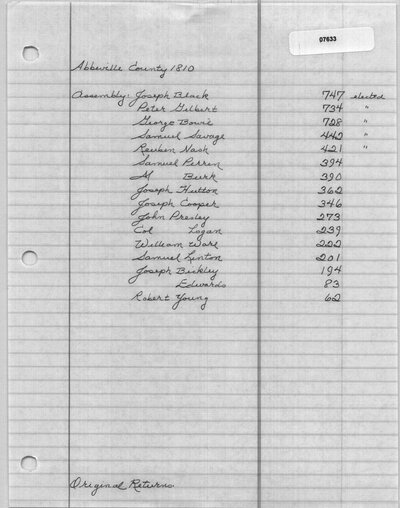 07633
Abbeville County 1810
Assembly: Joseph Black 747 elected
Peter Gilbert 734 "
George Bowie 728 "
Samuel Savage 442 "
Reuben Nash 421 "
Samuel Perren 394
M Burk 390
Joseph Hutton 362
Joseph Cooper 346
John Presley 273
Col Logan 239
William Ware 222
Samuel Linton 201
Joseph Bickley 194
Edwards 83
Robert Young 62
Original Returns